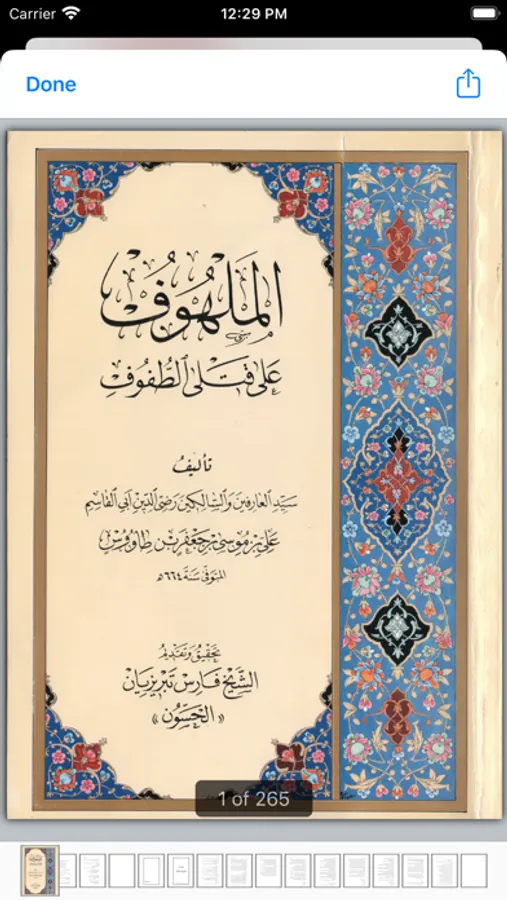 Carrier 12:29 PM
Done
المَلهُوف
عَلى قَتلَى الطُّفُوفِ
تأليف
سَيِّدِ العَارِفينَ وَالسَّالِكينَ رَضِيِّ الدِّينِ أبي القَاسِمِ
عَليّ بن مُوسَى بن جَعفَر بن طاوُوس
المتوفى سَنَة ٦٦٤ هـ
تَحقيقُ وَتَقديمُ
الشَّيخ فَارِس تَبريزيَان
«الحَسُّون»
1 of 265